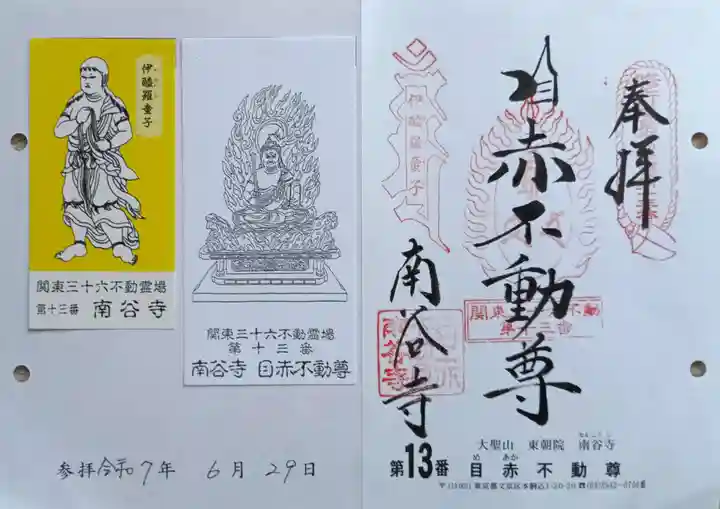 伊醯羅童子
関東三十六不動霊場
第十三番 南谷寺
関東三十六不動霊場
第十三番
南谷寺 目赤不動尊
参拝令和7年 6月29日
奉拝
目赤不動尊
南谷寺
関東三十六不動
第十三番
大聖山 東朝院 南谷寺
め あか
第13番 目赤不動尊
東京都文京区本駒込1-20-20